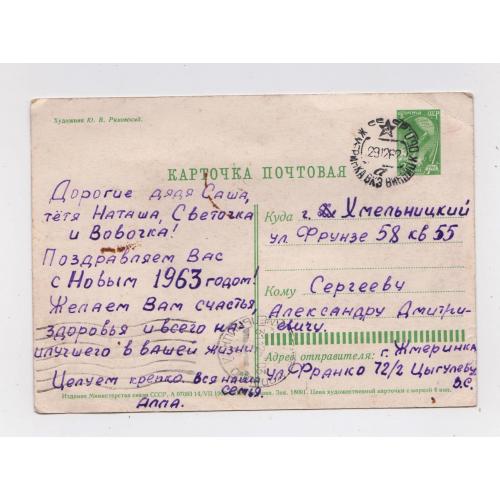 Художник Ю. В. Ряховский.
КАРТОЧКА ПОЧТОВАЯ
Дорогие дядя Саша,
тётя Наташа, Светочка
и Вовочка!
Поздравляем Вас
с Новым 1963 годом!
Желаем Вам счастья,
здоровья и всего на-
илучшего в вашей жизни
Целуем крепко вся наша
семья.
Алла.
Куда г. Хмельницкий
ул. Фрунзе 58 кв 55
Кому Сергееву
Александру Дмитри-
евичу.
Адрес отправителя: г. Жмеринка
ул. Франко 72/2 Цыгулеву
В.С.
Издание Министерства связи СССР. А 07093 14/VII
Зак. Цена художественной карточки с маркой 4 коп.